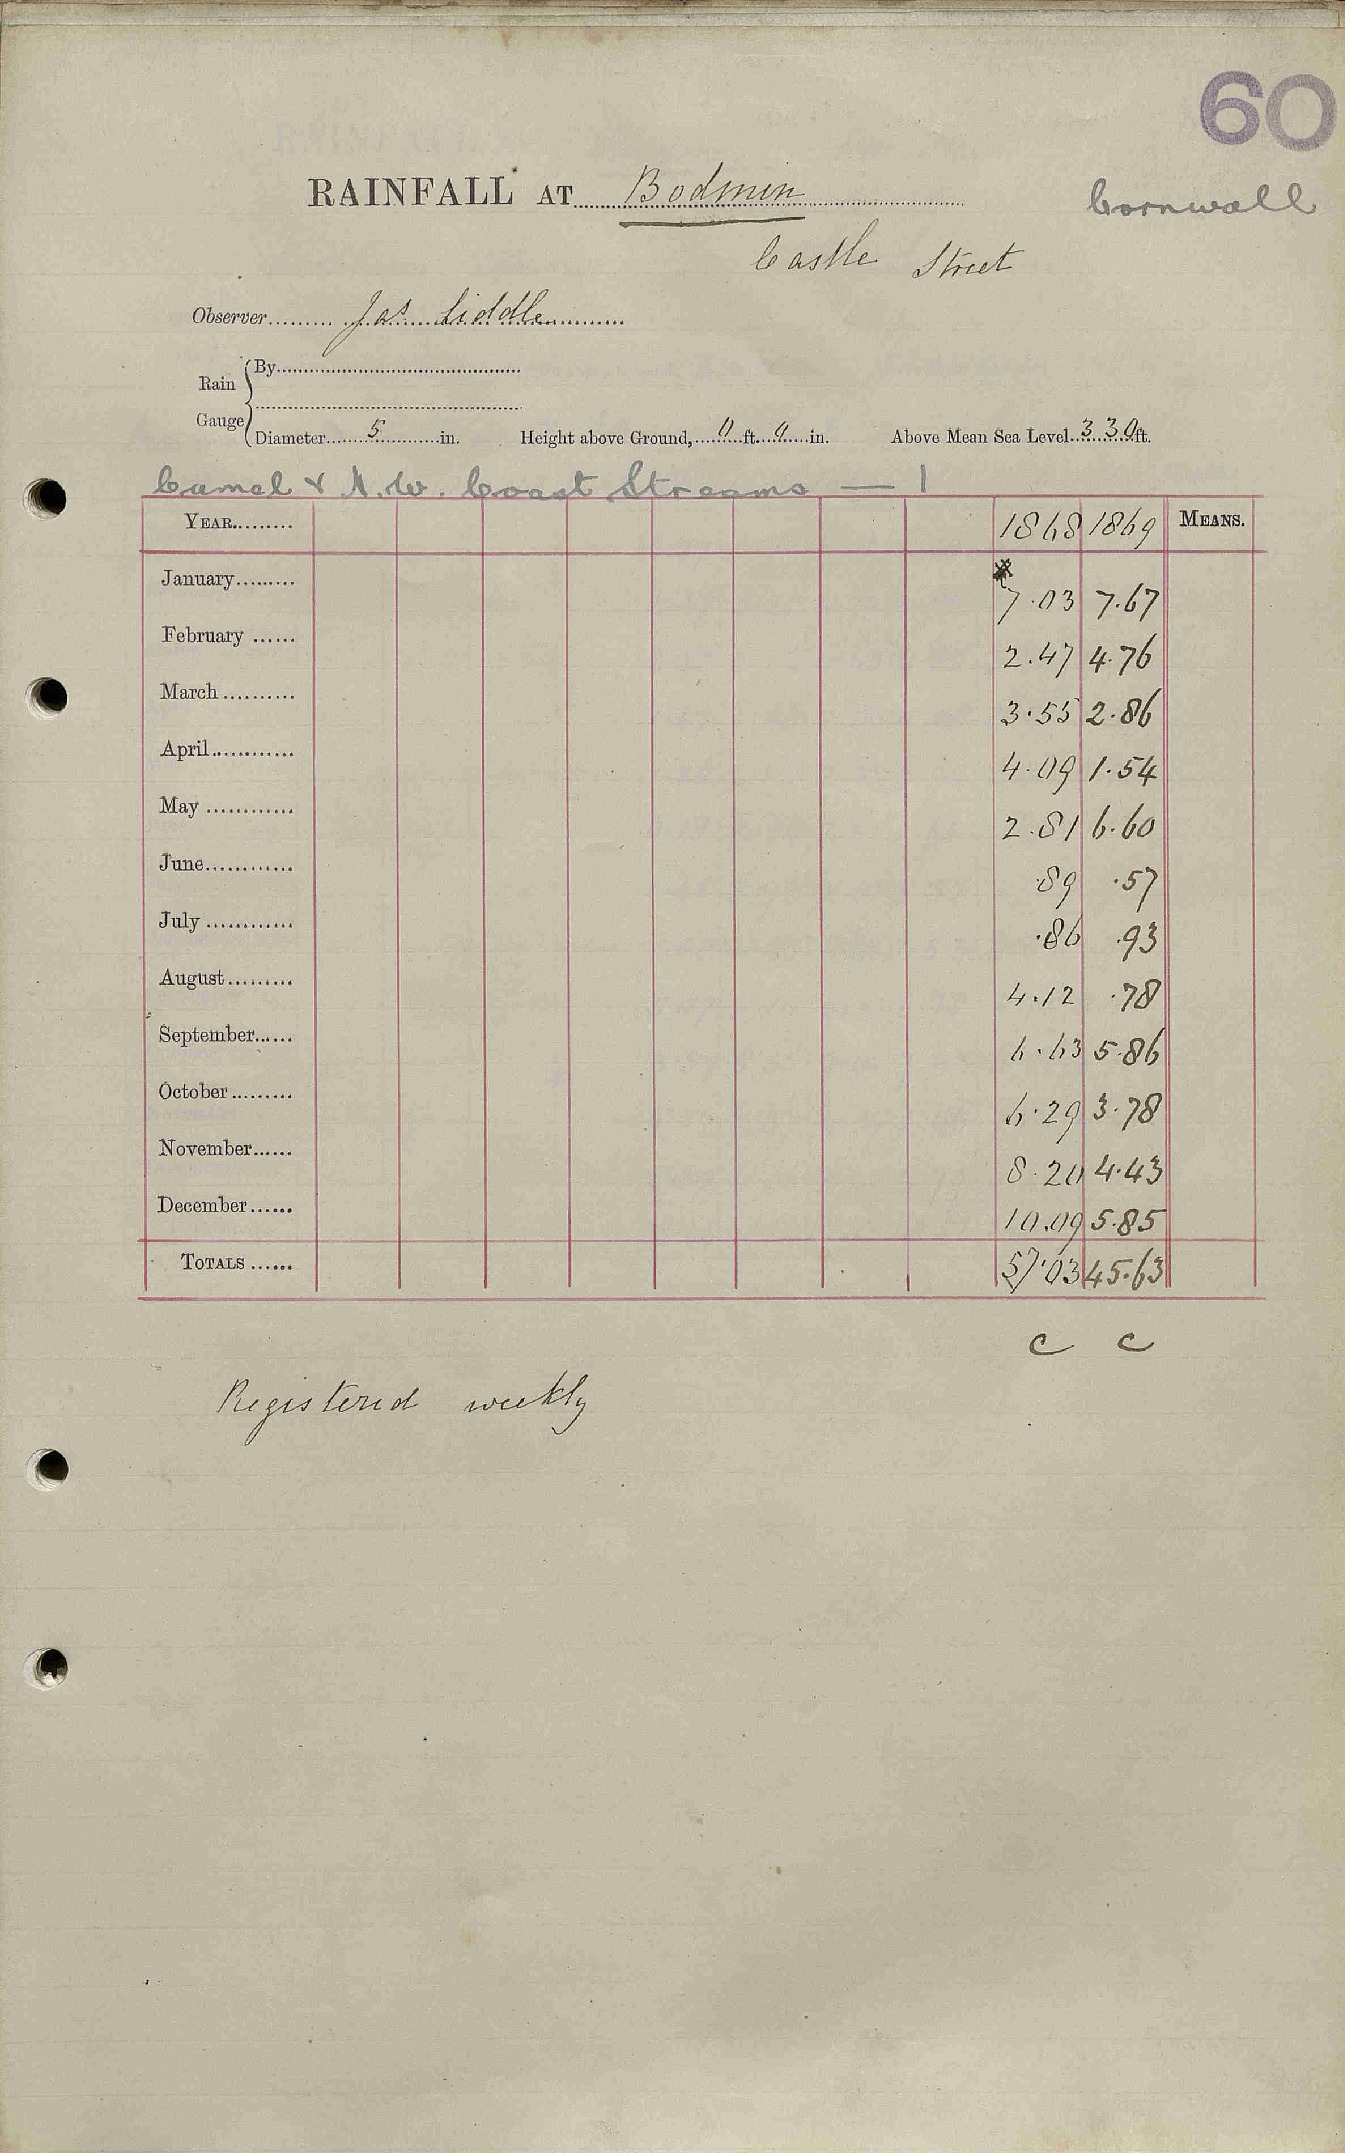 60
RAINFALL AT Bodmin Cornwall
Castle Street
Observer Jas Liddle
Rain Gauge
By
Diameter 5 in. Height above Ground, 0 ft. 9 in. Above Mean Sea Level 330 ft.
Camel & N.W. Coast Streams — 1
YEAR 1868 1869 MEANS.
January 7.03 7.67
February 2.47 4.76
March 3.55 2.86
April 4.09 1.54
May 2.81 6.60
June .89 .57
July .86 .93
August 4.12 .78
September 6.63 5.86
October 6.29 3.78
November 8.20 4.43
December 10.09 5.85
TOTALS 57.03 45.63
C C
Registered weekly